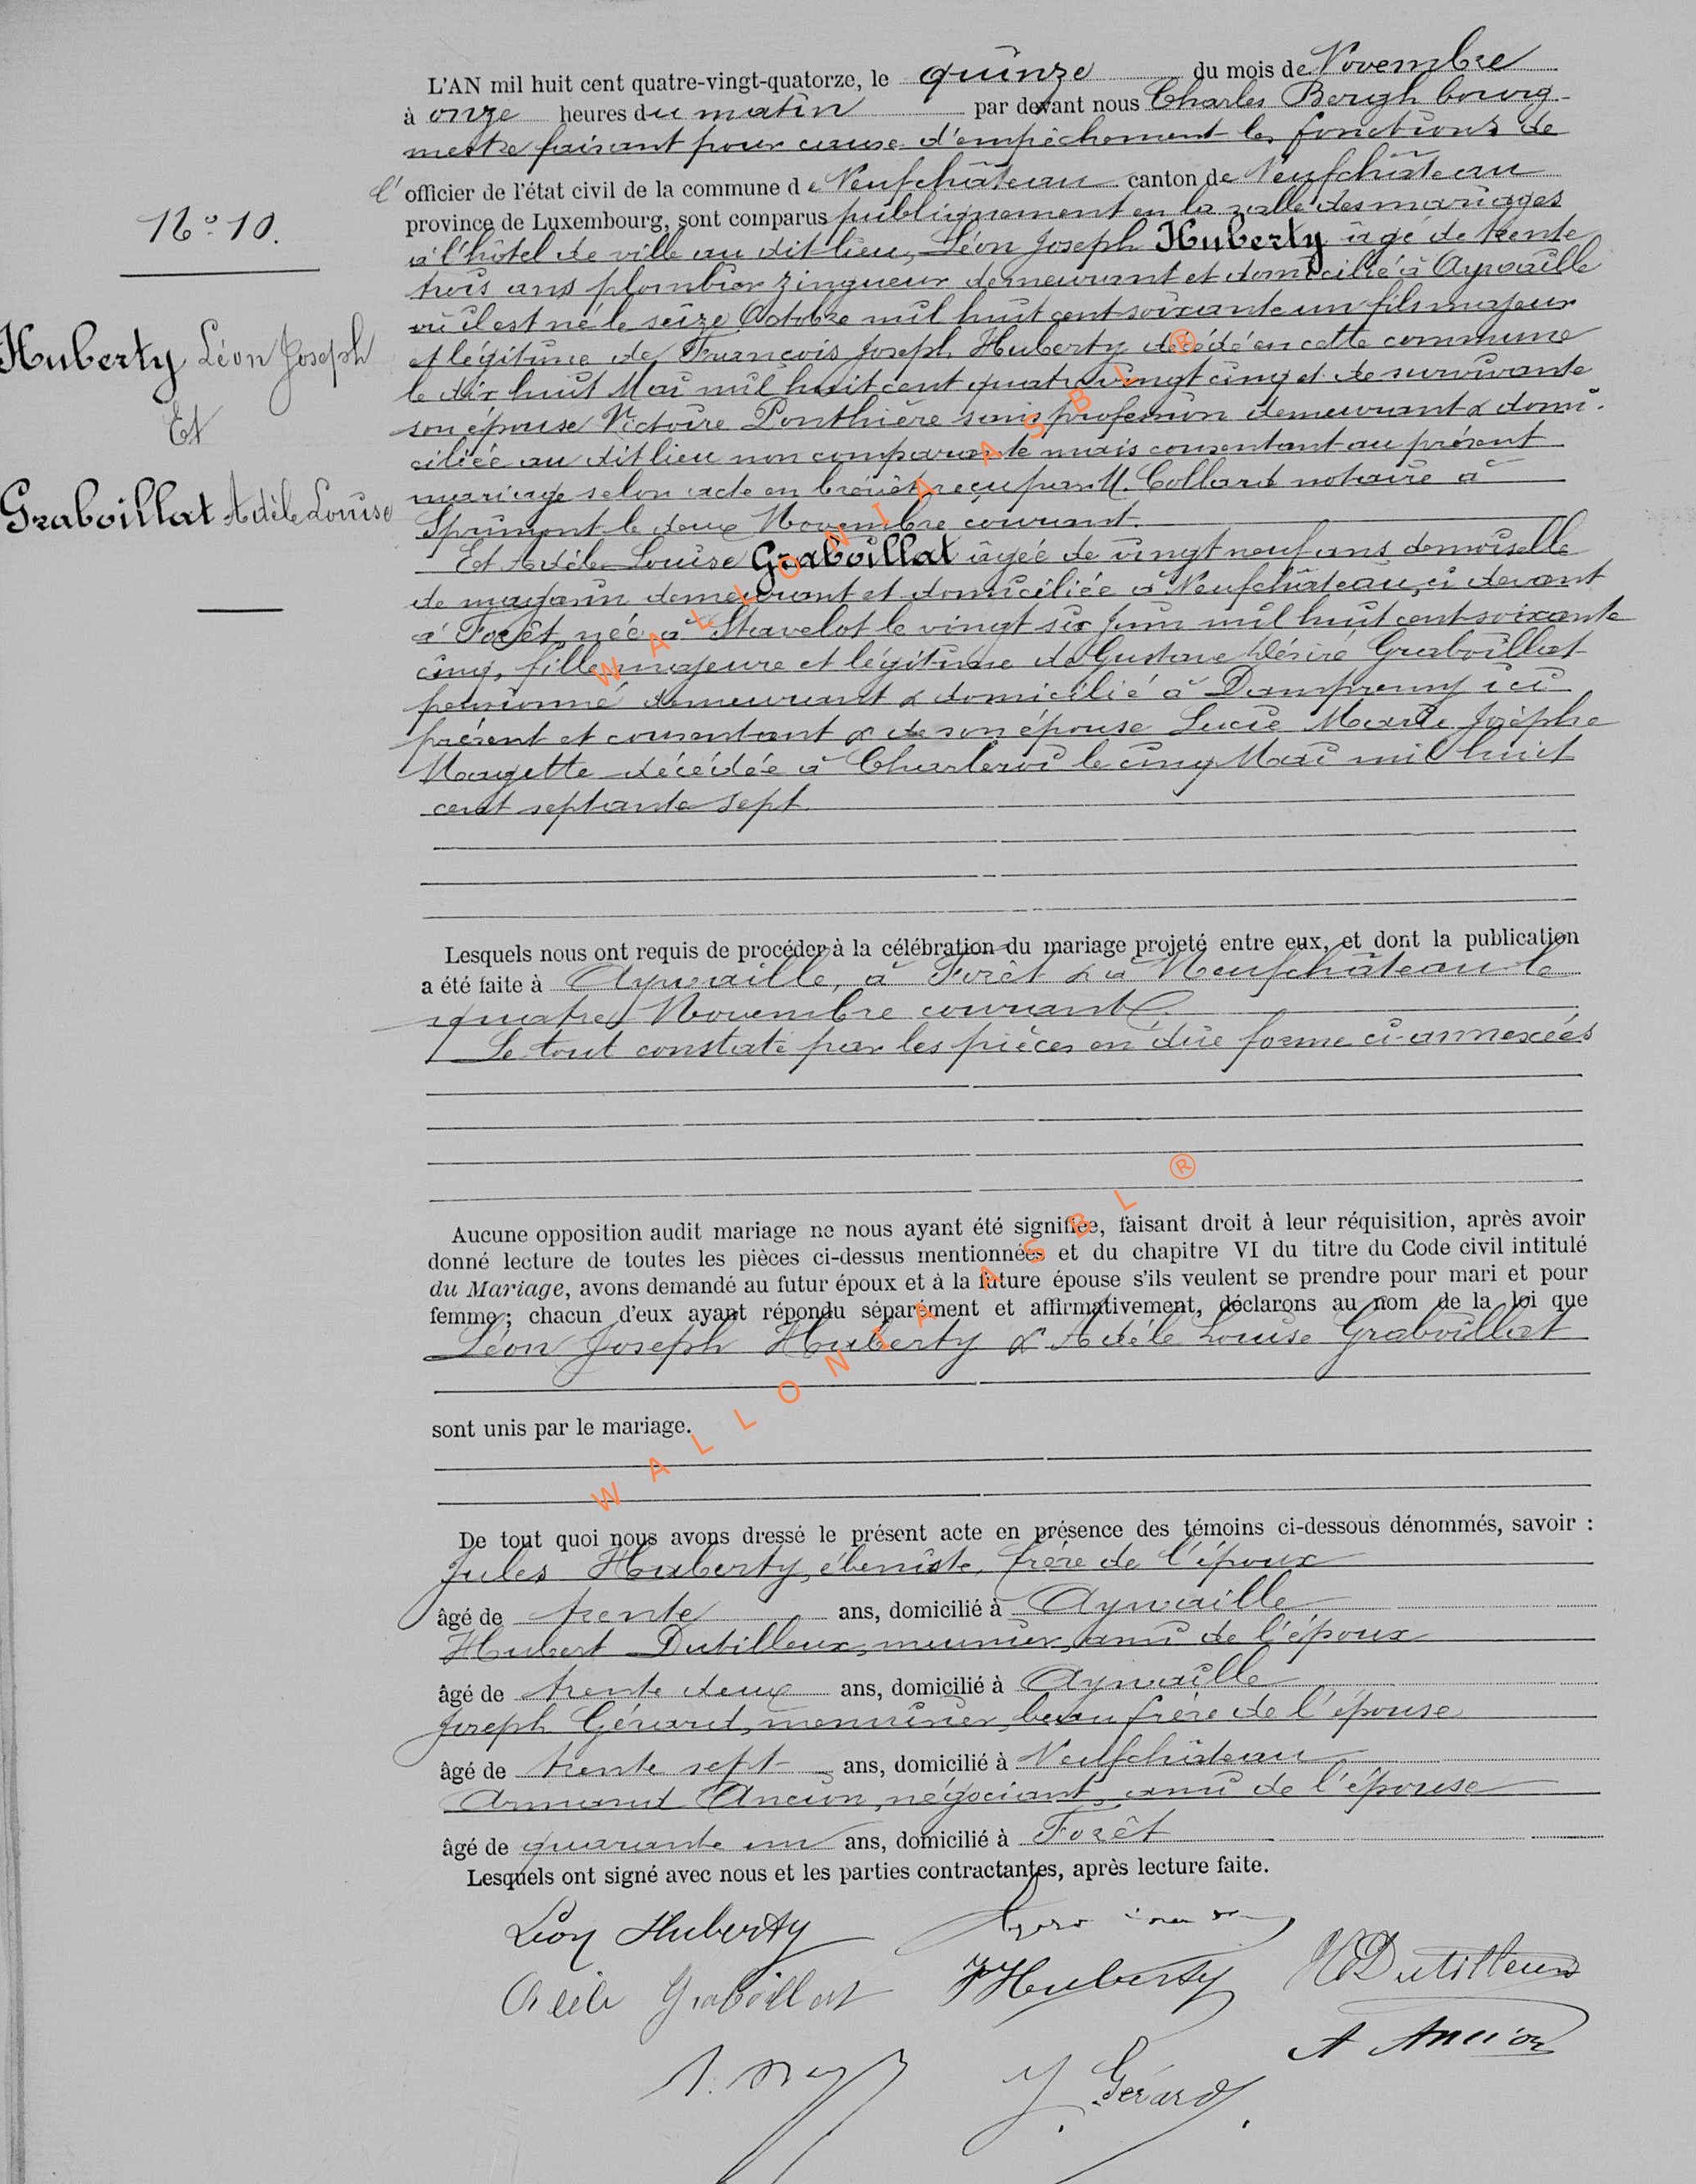 N° 10.
Huberty Léon Joseph
Et
Graboillat Adèle Louise
L'AN mil huit cent quatre-vingt-quatorze, le quinze du mois de Novembre
à onze heures du matin par devant nous Charles Bergh bourg-
mestre faisant pour cause d'empêchement les fonctions de
l'officier de l'état civil de la commune de Neufchâteau canton de Neufchâteau
province de Luxembourg, sont comparus publiquement en la salle des mariages
à l'hôtel de ville au dit lieu, Léon Joseph Huberty âgé de trente
trois ans plombier zingueur demeurant et domicilié à Aywaille
où il est né le seize Octobre mil huit cent soixante un fils majeur
et légitime de François Joseph Huberty décédé en cette commune
le dix huit Mai mil huit cent quatre vingt cinq et de survivante
son épouse Victoire Ponthière sans profession demeurant & domi-
ciliée au dit lieu non comparante mais consentant au présent
mariage selon acte en brevet reçu par M. Collard notaire à
Sprimont le deux Novembre courant.
Et Adèle Louise Graboillat âgée de vingt neuf ans demoiselle
de magasin demeurant et domiciliée à Neufchâteau, ci devant
à Forêt, née à Stavelot le vingt six Juin mil huit cent soixante
cinq, fille majeure et légitime de Gustave Désiré Graboillat
pensionné demeurant & domicilié à Dampremy ici
présent et consentant & de son épouse Lucie Marie Josèphe
Magette décédée à Charleroi le cinq Mai mil huit
cent septante sept.
Lesquels nous ont requis de procéder à la célébration du mariage projeté entre eux, et dont la publication
a été faite à Aywaille, à Forêt & à Neufchâteau le
quatre Novembre courant.
Le tout constaté par les pièces en dûe forme ci-annexées
Aucune opposition audit mariage ne nous ayant été signifiée, faisant droit à leur réquisition, après avoir
donné lecture de toutes les pièces ci-dessus mentionnées et du chapitre VI du titre du Code civil intitulé
du Mariage, avons demandé au futur époux et à la future épouse s'ils veulent se prendre pour mari et pour
femme ; chacun d'eux ayant répondu séparément et affirmativement, déclarons au nom de la loi que
Léon Joseph Huberty & Adèle Louise Graboillat
sont unis par le mariage.
De tout quoi nous avons dressé le présent acte en présence des témoins ci-dessous dénommés, savoir :
Jules Huberty, ébéniste, frère de l'époux
âgé de trente ans, domicilié à Aywaille
Hubert Dutilleux, meunier, ami de l'époux
âgé de trente deux ans, domicilié à Aywaille
Joseph Gérard, menuisier, beau frère de l'épouse
âgé de trente sept ans, domicilié à Neufchâteau
Armand Ancion, négociant, ami de l'épouse
âgé de quarante un ans, domicilié à Forêt
Lesquels ont signé avec nous et les parties contractantes, après lecture faite.
Léon Huberty
Adèle Graboillat
JHuberty
HDutilleux
A Ancion
J. Gérard
WALLONIA ASBL ®
WALLONIA ASBL ®